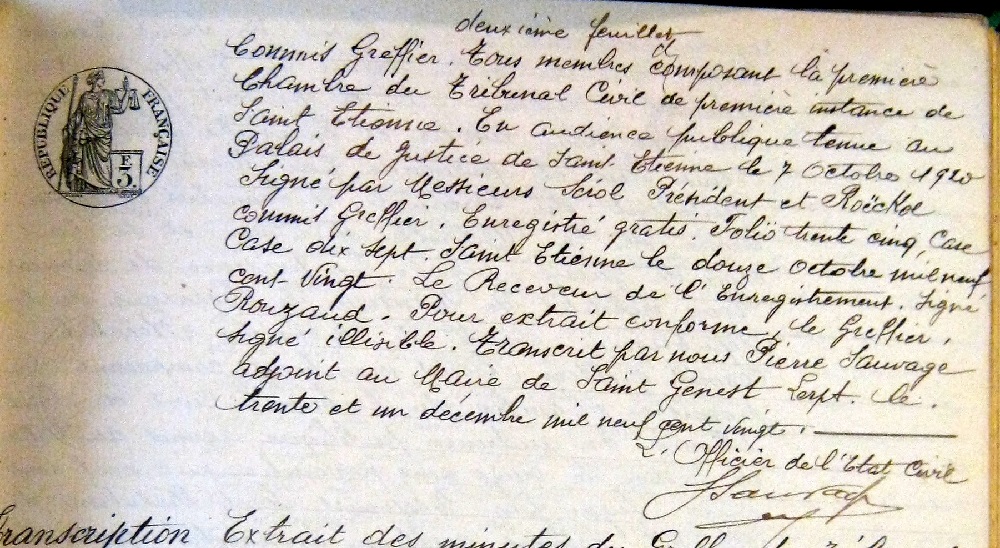 deuxième feuillet
RÉPUBLIQUE FRANÇAISE
F
3.
Commis Greffier. Tous membres composant la première
Chambre du Tribunal Civil de première instance de
Saint Etienne. En audience publique tenue au
Palais de Justice de Saint Etienne le 7 Octobre 1920
Signé par Messieurs Président et
commis Greffier. Enregistré gratis. Folio trente cinq, Case
Case dix sept. Saint Etienne le douze Octobre mil neuf
cent-Vingt. Le Receveur de l'Enregistrement. Signé
Rouzaud. Pour extrait conforme, le Greffier,
signé illisible. Transcrit par nous Pierre Sauvage
adjoint au Maire de Saint Genest Lerpt. le.
trente et un décembre mil neuf cent vingt.
L'Officier de l'Etat Civil
Sauvage
Transcription Extrait des minutes du